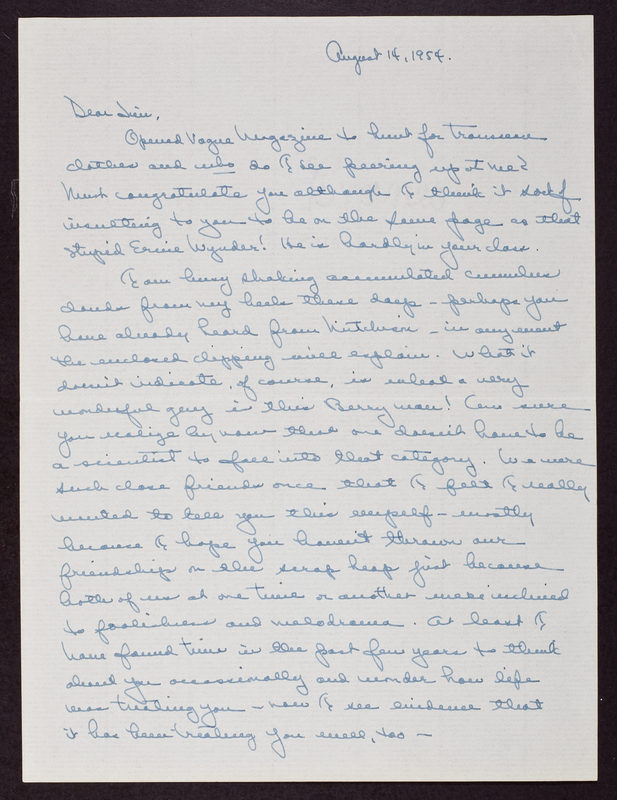 August 14, 1954.
Dear Jim,
Opened Vogue Magazine to hunt for trousseau
clothes and who do I see peering up at me?
Must congratulate you although I think it sort of
insulting to you to be on the same page as that
stupid Ernie Wynder! He is hardly in your class.
I am busy shaking accumulated cumulus
clouds from my heels these days – perhaps you
have already heard from – in any event
the enclosed clipping will explain. What it
doesn't indicate, of course, is what a very
wonderful guy is this Berry man! Am sure
you realize by now that one doesn't have to be
a scientist to fall into that category. We were
such close friends once that I felt I really
wanted to tell you this myself – mostly
because I hope you haven't thrown our
friendship on the scrap heap just because
both of us at one time or another were inclined
to foolishness and melodrama. At least I
have found time in the past few years to think
about you occasionally and wonder how life
was treating you – now I see evidence that
it has been treating you well, too –